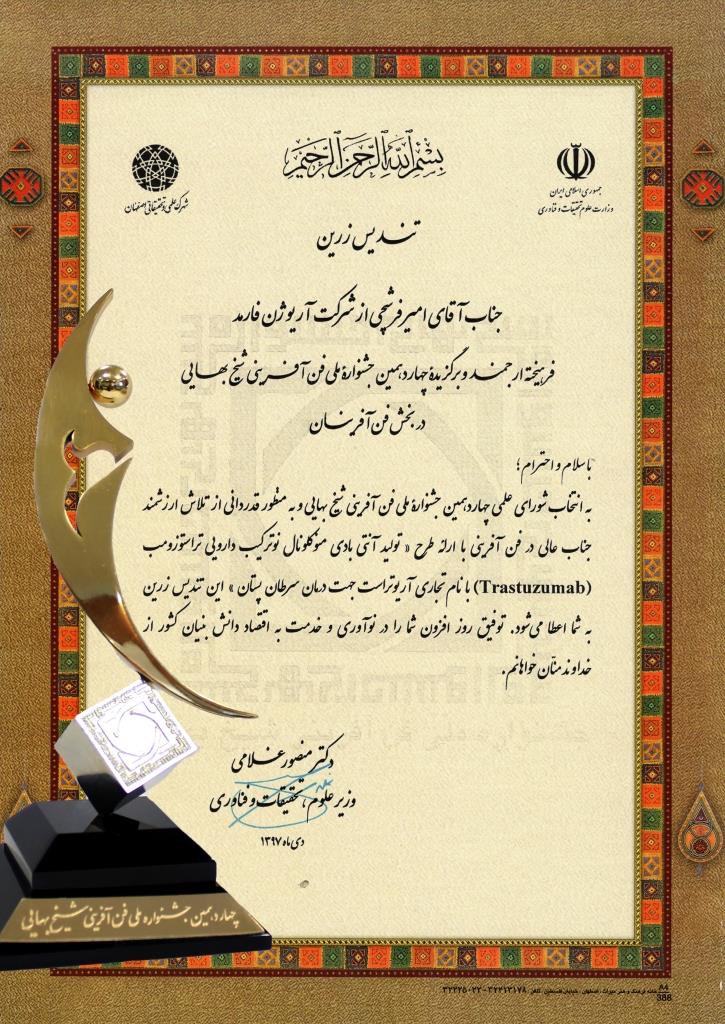 بسم الله الرحمن الرحیم
جمهوری اسلامی ایران
وزارت علوم تحقیقات و فناوری
شهرک علمی و تحقیقاتی اصفهان
تندیس زرین
جناب آقای امیر فرشچی از شرکت آریوژن فارمد
فرهیخته ارجمند و برگزیدهٔ چهاردهمین جشنوارهٔ ملی فن آفرینی شیخ بهایی
در بخش فن آفرینان
با سلام و احترام؛
به انتخاب شورای علمی چهاردهمین جشنوارهٔ ملی فن آفرینی شیخ بهایی و به منظور قدردانی از تلاش ارزشمند
جناب عالی در فن آفرینی با ارائه طرح « تولید آنتی بادی مونوکلونال نوترکیب دارویی تراستوزومب
(Trastuzumab) با نام تجاری آریوتراست جهت درمان سرطان پستان » این تندیس زرین
به شما اعطا می‌شود. توفیق روز افزون شما را در نوآوری و خدمت به اقتصاد دانش بنیان کشور از
خداوند منّان خواهانم.
دکتر منصور غلامی
وزیر علوم، تحقیقات و فناوری
دی ماه ۱۳۹۷
چهاردهمین جشنواره ملی فن آفرینی شیخ بهایی
خانه فرهنگ و هنر میراث : اصفهان - خیابان فلسطین
A4
386